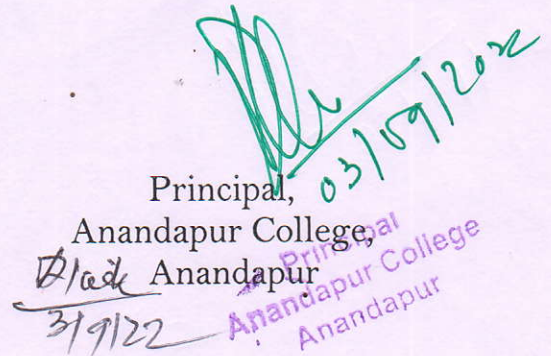 03/09/2022
Principal,
Anandapur College,
Anandapur
3/9/22
Principal
Anandapur College
Anandapur